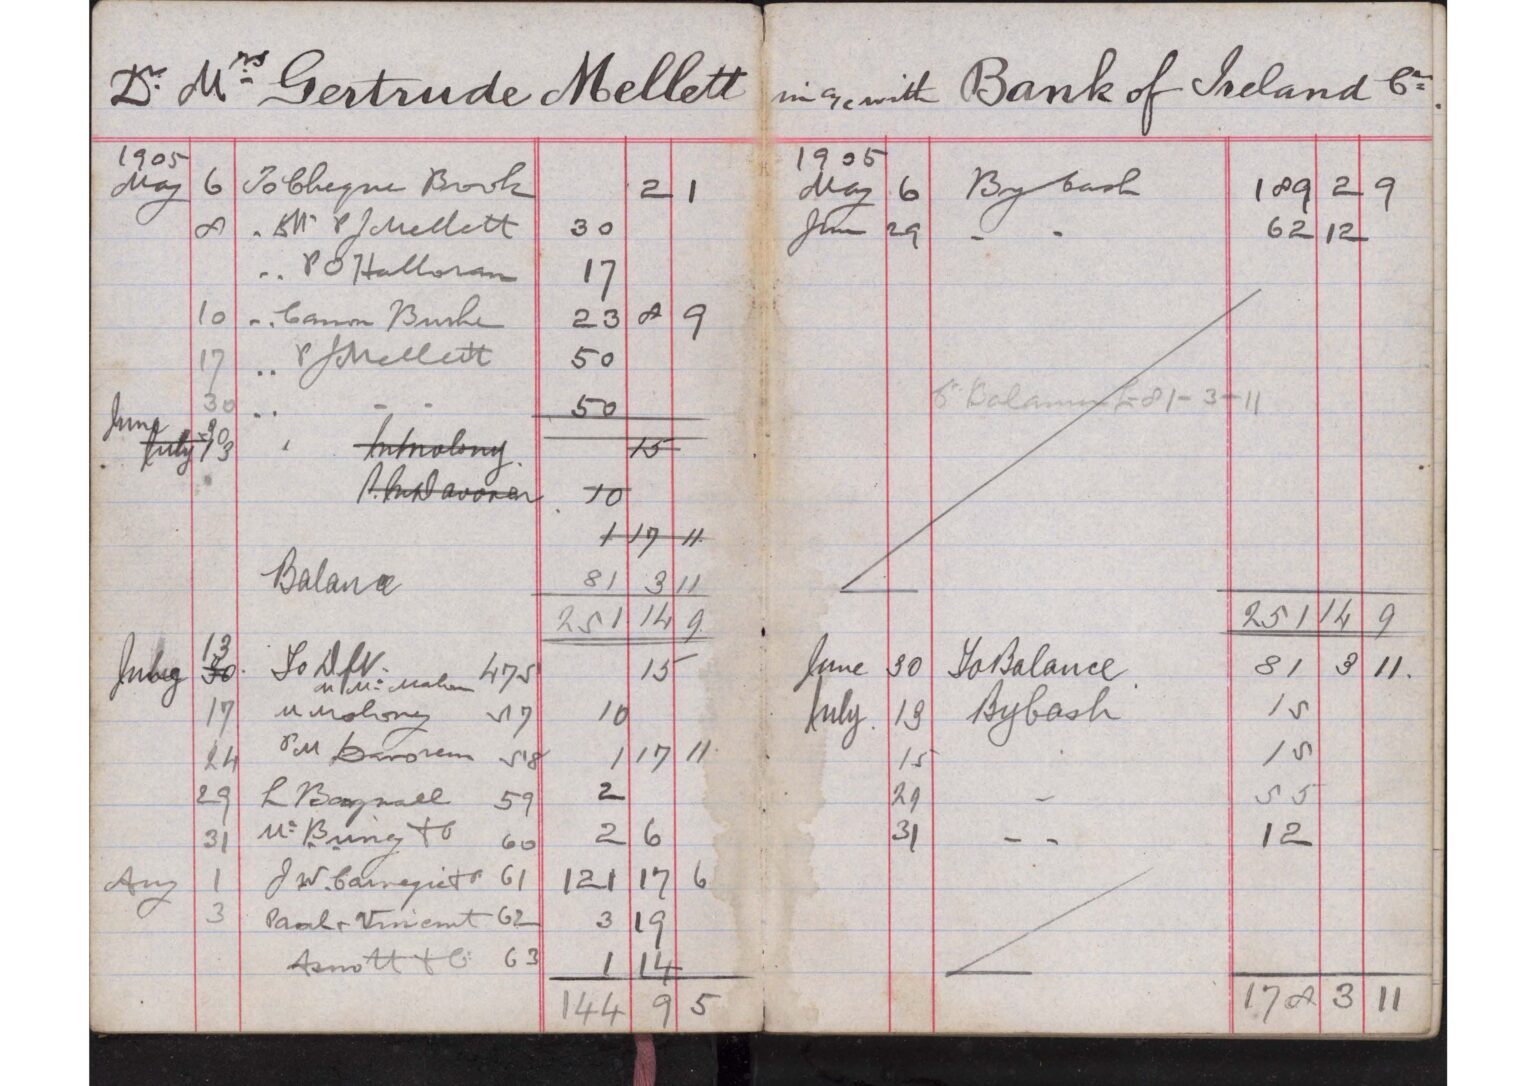 Dr. Mrs Gertrude Mellett in a/c with Bank of Ireland Cr.
1905
May 6 To Cheque Book 2 1
8 " Mr P J Mellett 30
" P O Halloran 17
10 " Canon Burke 23 8 9
17 " P J Mellett 50
30 " - - 50
June 30
July 13 " 15
10
1 17 11
Balance 81 3 11
251 14 9
July 13 30 To 475 15
M McMahon
17 M Molony 57 10
24 P M Davoren 58 1 17 11
29 L Bagnall 59 2
31 Mc Birney & Co 60 2 6
Aug 1 J W. Carnegie & Co 61 121 17 6
3 Paul & Vincent 62 3 19
Arnott & Co 63 1 14
144 9 5
1905
May 6 By Cash 189 2 9
June 29 - - 62 12
Cr Balance £ 81-3-11
251 14 9
June 30 To Balance 81 3 11.
July 13 By Cash 15
15 " 15
29 - 55
31 - - 12
178 3 11